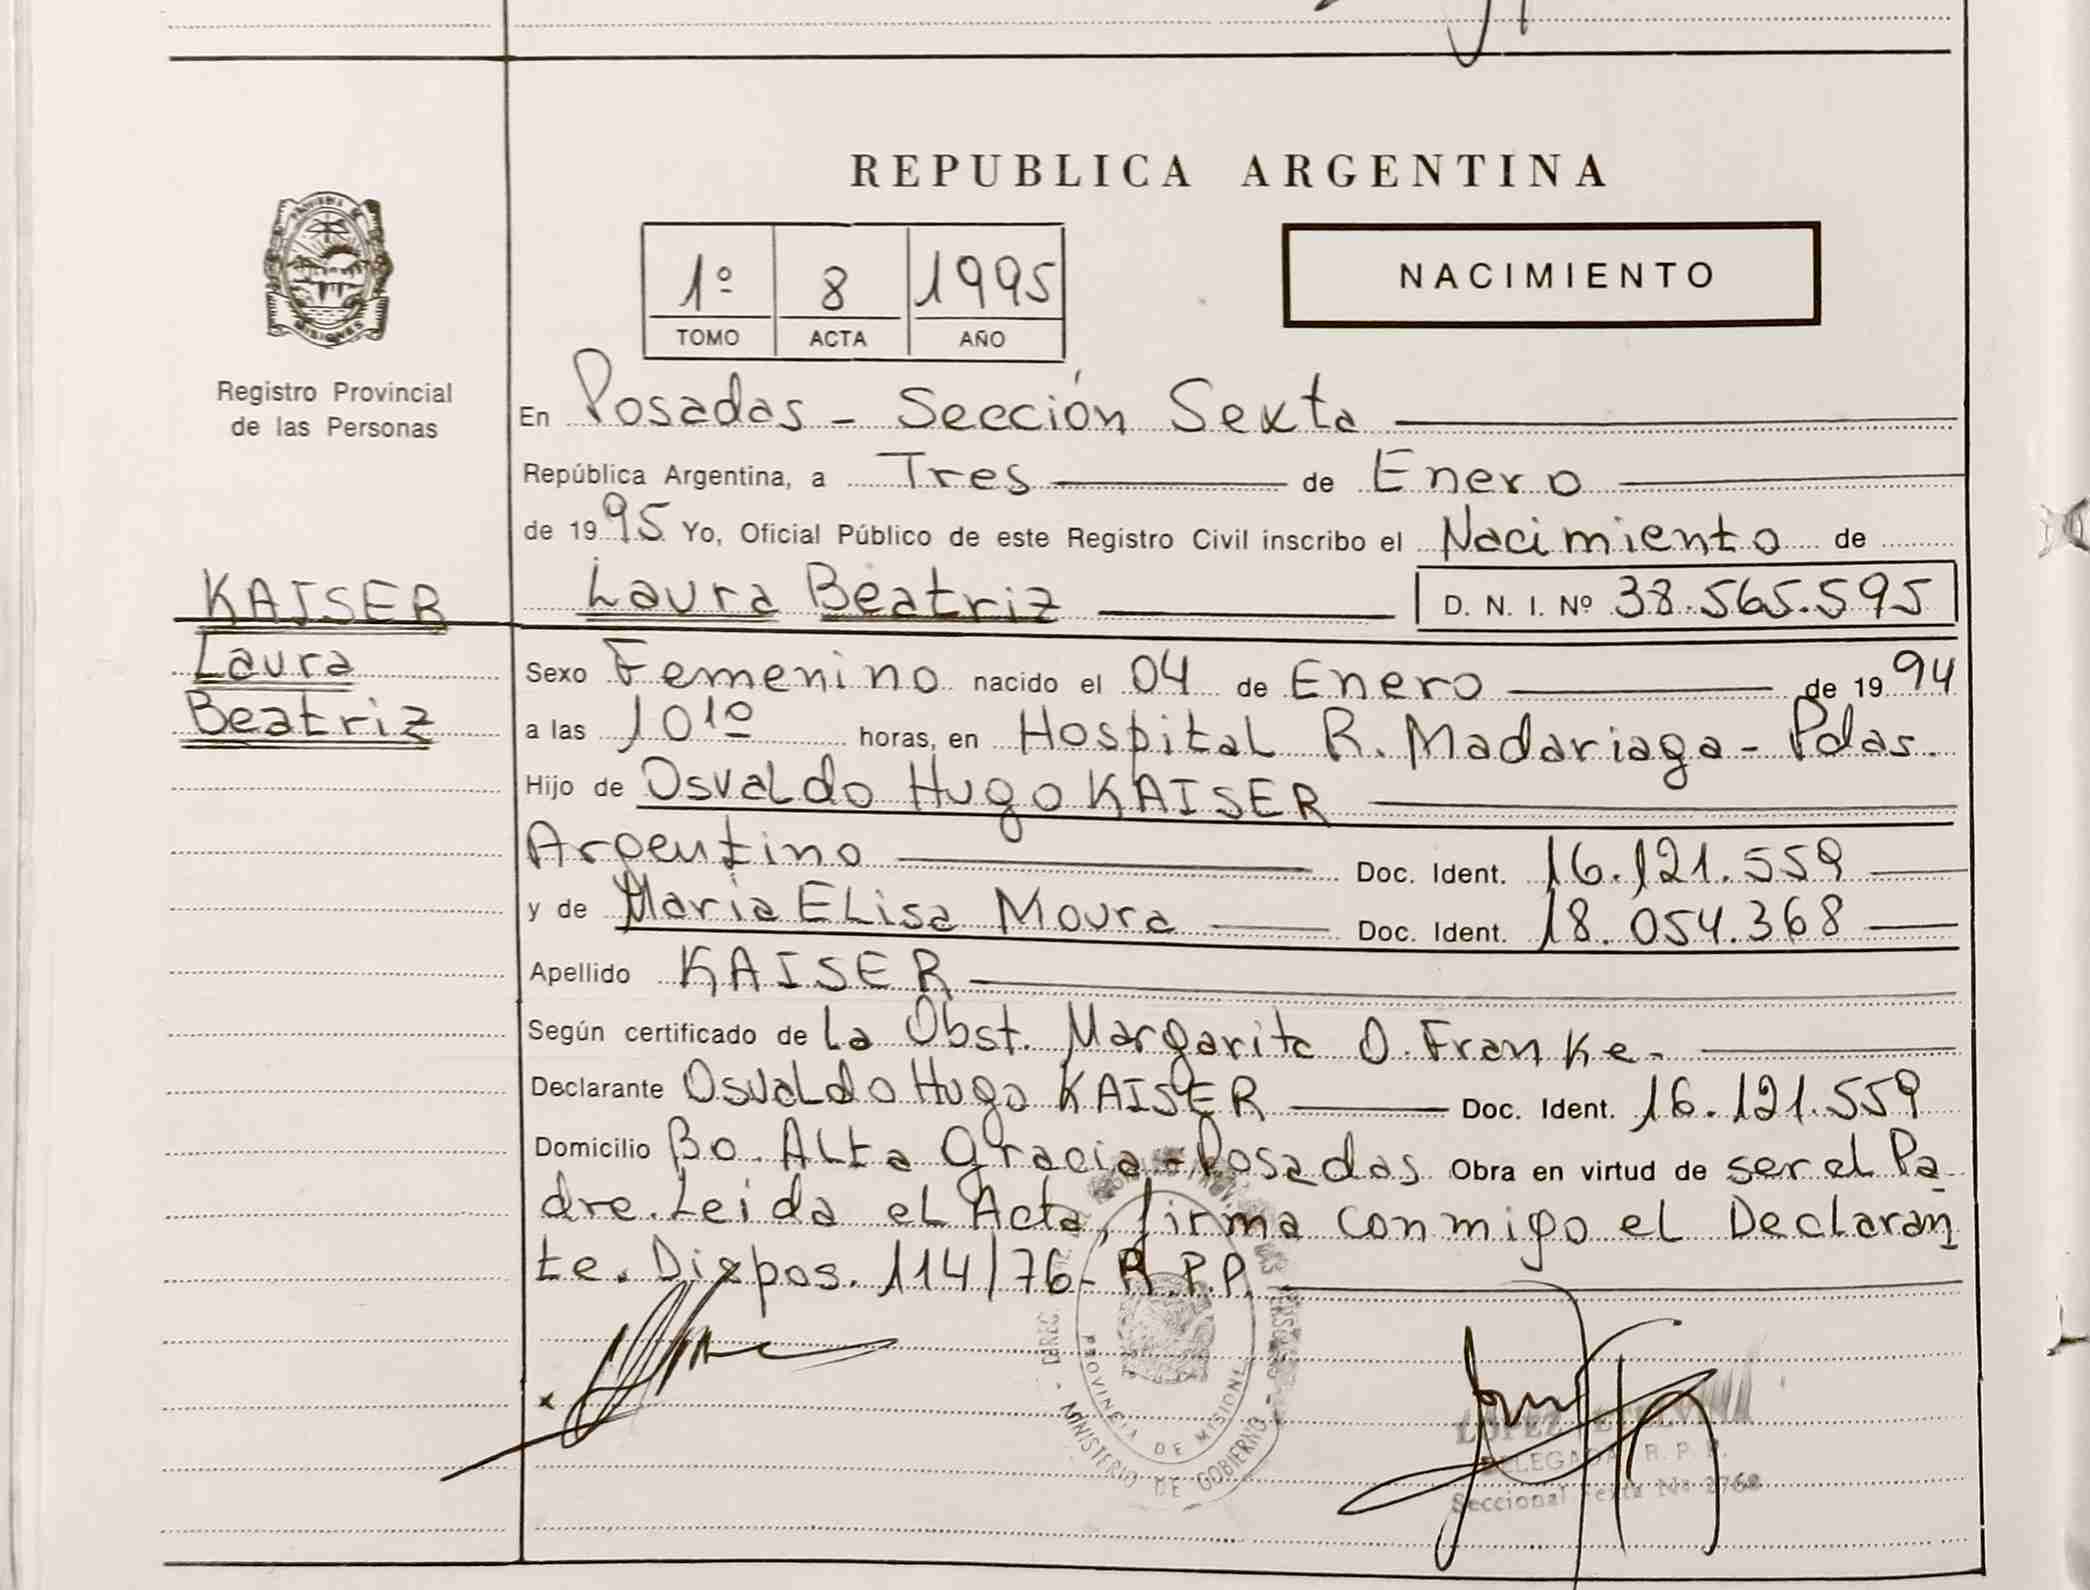 REPUBLICA ARGENTINA
PROVINCIA DE
MISIONES
Registro Provincial
de las Personas
1º 8 1995
TOMO ACTA AÑO
NACIMIENTO
En Posadas - Sección Sexta
República Argentina, a Tres de Enero
de 1995 Yo, Oficial Público de este Registro Civil inscribo el Nacimiento de
KAISER
Laura
Beatriz
Laura Beatriz D. N. I. Nº 38.565.595
Sexo Femenino nacido el 04 de Enero de 1994
a las 10¹⁰ horas, en Hospital R. Madariaga - Pdas.
Hijo de Osvaldo Hugo KAISER
Argentino Doc. Ident. 16.121.559
y de María ELisa Moura Doc. Ident. 18.054.368
Apellido KAISER
Según certificado de La Obst. Margarita O. Franke.
Declarante Osvaldo Hugo KAISER Doc. Ident. 16.121.559
Domicilio Bo. Alta Gracia - Posadas Obra en virtud de ser el Pa
dre. Leida el Acta, firma conmigo el Declaran
te. Dispos. 114/76 - R.P.P.
PROVINCIA DE MISIONES
MINISTERIO DE GOBIERNO
LOPEZ
DELEGADA R. P. P.
Seccional Sexta Nº 2768